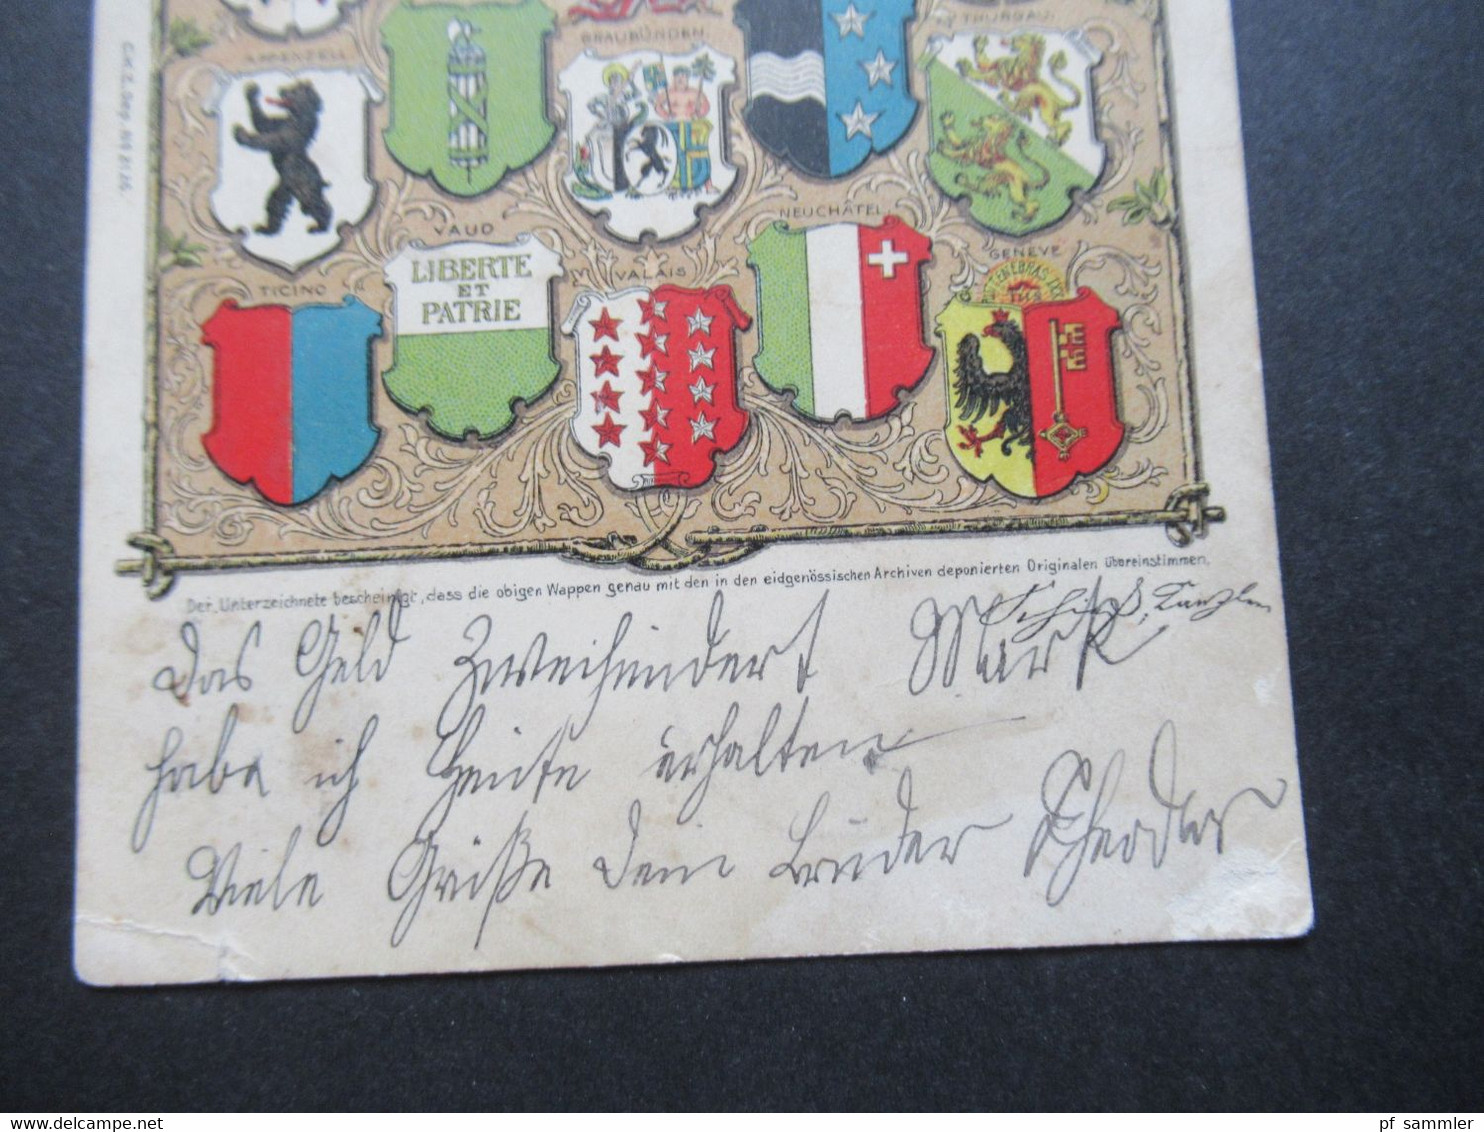 THURGAU.
GRAUBÜNDEN.
APPENZELL
C.K.Z.
NEUCHÂTEL
VAUD
GENÈVE
LIBERTE
ET
PATRIE
VALAIS
TICINO
Der Unterzeichnete bescheinigt, dass die obigen Wappen genau mit den in den eidgenössischen Archiven deponierten Originalen übereinstimmen.
Das Geld Zweihundert Mark
habe ich Heute erhalten
Viele Grüße Dein Bruder Theodor
pf_sammler